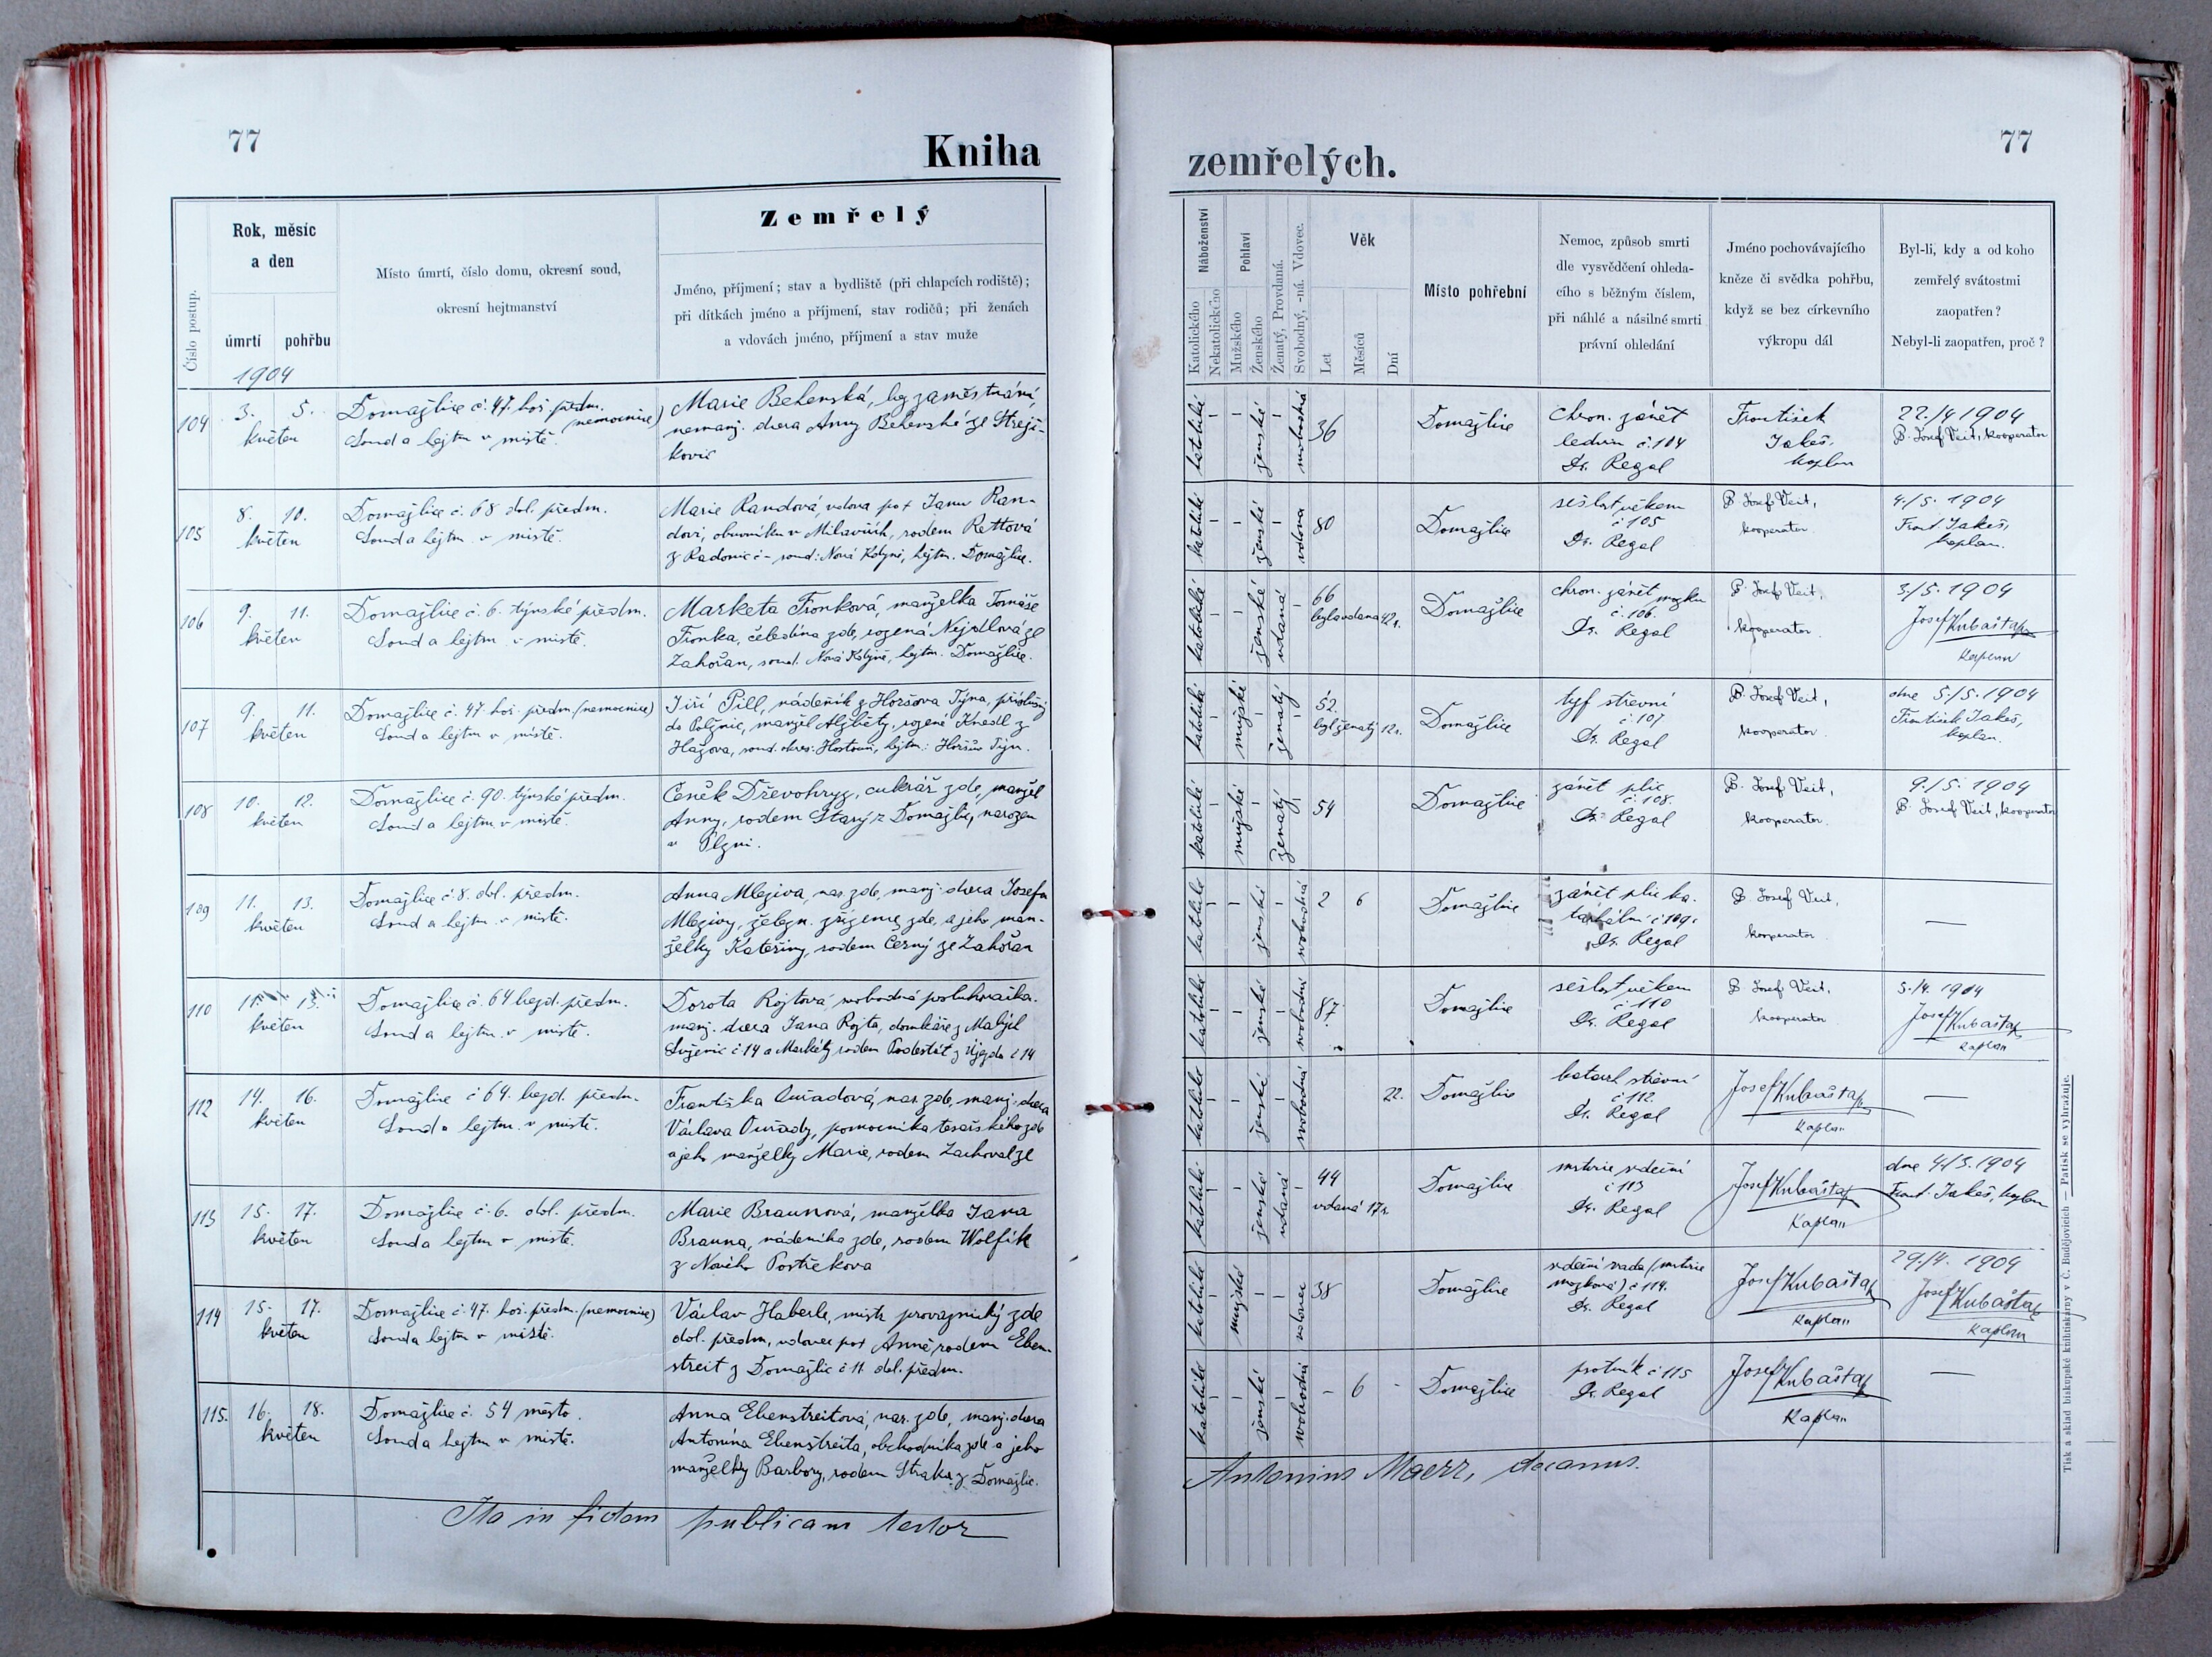 77
Kniha
Číslo postup.
Rok, měsíc
a den
úmrtí pohřbu
1904
Místo úmrtí, číslo domu, okresní soud,
okresní hejtmanství
Zemřelý
Jméno, příjmení; stav a bydliště (při chlapcích rodiště);
při dítkách jméno a příjmení, stav rodičů; při ženách
a vdovách jméno, příjmení a stav muže
104
3. 5.
květen
Domažlice č. 47. hoř. předm.
(nemocnice)
Soud a hejtm. v místě.
Marie Behenská, bez zaměstnání,
nemanž. dcera Anny Behenské ze
105
8. 10.
květen
Domažlice č. 68 dol. předm.
Soud a hejtm. v místě.
Marie Randová, vdova po † Janu Ran-
dovi, obuvníku v Milavčích, rodem Rettová
z Radonic č - soud: Nová Kdyně, hejtm. Domažlice.
106
9. 11.
květen
Domažlice č. 6. týnské předm.
Soud a hejtm. v místě.
Marketa Fronková, manželka Tomáše
Fronka, čeledína zde, rozená Nejdlová ze
Zahořan, soud. Nová Kdyně, hejtm. Domažlice.
107
9. 11.
květen
Domažlice č. 47 hoř. předm. (nemocnice)
Soud a hejtm. v místě.
Jiří Pill, nádeník z Horšova Týna, příslušný
do manžel Alžběty, rozené Knedl z
soud. okres: Hostouň, hejtm.: Horšův Týn.
108
10. 12.
květen
Domažlice č. 90. týnské předm.
Soud a hejtm. v místě.
Čeněk Dřevohryz, cukrář zde, manžel
Anny, rodem Starý z Domažlic, narozen
v Plzni.
109
11. 13.
květen
Domažlice č. 8. dol. předm.
Soud a hejtm. v místě.
Anna Mleziva, nar. zde, manž. dcera Josefa
Mlezivy, železn. zřízence zde, a jeho man-
želky Kateřiny, rodem Černý ze Zahořan
110
11. 13.
květen
Domažlice č. 64 bezd. předm.
Soud a hejtm. v místě.
Dorota Rojtová, svobodná posluhovačka.
manž. dcera Jana Rojta, domkáře z Malých
Luženic č 14 a Markéty rodem Podestát z Újezda č 14
112
14. 16.
květen
Domažlice č 64. bezd. předm.
Soud a hejtm. v místě.
Františka Ouřadová, nar. zde, manž. dcera
Václava Ouřady, pomocníka tesařského zde
a jeho manželky Marie, rodem Zachoval ze
113
15. 17.
květen
Domažlice č. 6. dol. předm.
Soud a hejtm v místě.
Marie Braunová, manželka Jana
Brauna, nádeníka zde, rodem Wolfík
z Nového Postřekova
114
15. 17.
květen
Domažlice č. 47. hoř. předm. (nemocnice)
Soud a hejtm v místě.
Václav Haberle, mistr provaznický zde
dol. předm., vdovec po † Anně rodem Eben-
streit z Domažlic č 11 dol. předm.
115.
16. 18.
květen
Domažlice č. 54 město.
Soud a hejtm v místě.
Anna Ebenstreitová, nar. zde, manž. dcera
Antonína Ebenstreita, obchodníka zde a jeho
manželky Barbory, rodem Straka z Domažlic.
Ita in fidem publicam testor
77
zemřelých.
Náboženství
Katolického
Nekatolického
Pohlaví
Mužského
Ženského
Ženatý, Provdaná.
Svobodný, -ná. Vdovec.
Věk
Let
Měsíců
Dní
Místo pohřební
Nemoc, způsob smrti
dle vysvědčení ohleda-
cího s běžným číslem,
při náhlé a násilné smrti
právní ohledání
Jméno pochovávajícího
kněze či svědka pohřbu,
když se bez církevního
výkropu dál
Byl-li, kdy a od koho
zemřelý svátostmi
zaopatřen?
Nebyl-li zaopatřen, proč?
katolické
ženské
svobodná
36
Domažlice
chron. zánět
ledvin č. 104
Dr. Regal
František
Jakeš.
kaplan
22./4 1904
P. Josef Veit, kooperator
katolické
ženské
vdova
80
Domažlice
sešlost věkem
č 105
Dr. Regal
P. Josef Veit,
kooperator
4./5. 1904
Frant Jakeš,
kaplan.
katolické
ženské
vdaná
66
byla vdaná 42 r.
Domažlice
chron. zánět mozku
č. 106.
Dr. Regal
P. Josef Veit,
kooperator.
3./5. 1904
Josef Kubašta
kaplan
katolické
mužské
ženatý
52.
byl ženatý 12 r.
Domažlice
tyf střevní
č. 107
Dr. Regal
P. Josef Veit,
kooperator.
dne 5./5. 1904
František Jakeš,
kaplan.
katolické
mužské
ženatý
54
Domažlice
zánět plic
č. 108.
Dr. Regal
P. Josef Veit,
kooperator.
9./5. 1904
P. Josef Veit, kooperator
katolické
ženské
svobodná
2 6
Domažlice
zánět plic ka-
tarhální č 109.
Dr. Regal
P. Josef Veit,
kooperator.
—
katolické
ženské
svobodná
87
Domažlice
sešlost věkem
č 110
Dr. Regal
P. Josef Veit.
kooperator
5./4. 1904
Josef Kubašta
kaplan
katolické
ženské
svobodná
22.
Domažlice
katarh střevní
č 112.
Dr. Regal
Josef Kubašta
kaplan
—
katolické
ženské
vdaná
44
vdaná 17 r.
Domažlice
mrtvice srdeční
č 113
Dr. Regal
Josef Kubašta
Kaplan
dne 4./5. 1904
Frant. Jakeš, kaplan
katolické
mužské
vdovec
38
Domažlice
srdeční vada (mrtvice
mozková) č 114.
Dr. Regal
Josef Kubašta
kaplan
29./4. 1904
Josef Kubašta
kaplan
katolické
ženské
svobodná
– 6 -
Domažlice
psotník č 115
Dr. Regal
Josef Kubašta
Kaplan
—
Antonius Maerz, decanus.
Tisk a sklad biskupské knihtiskárny v Č. Budějovicích — Patisk se vyhražuje.